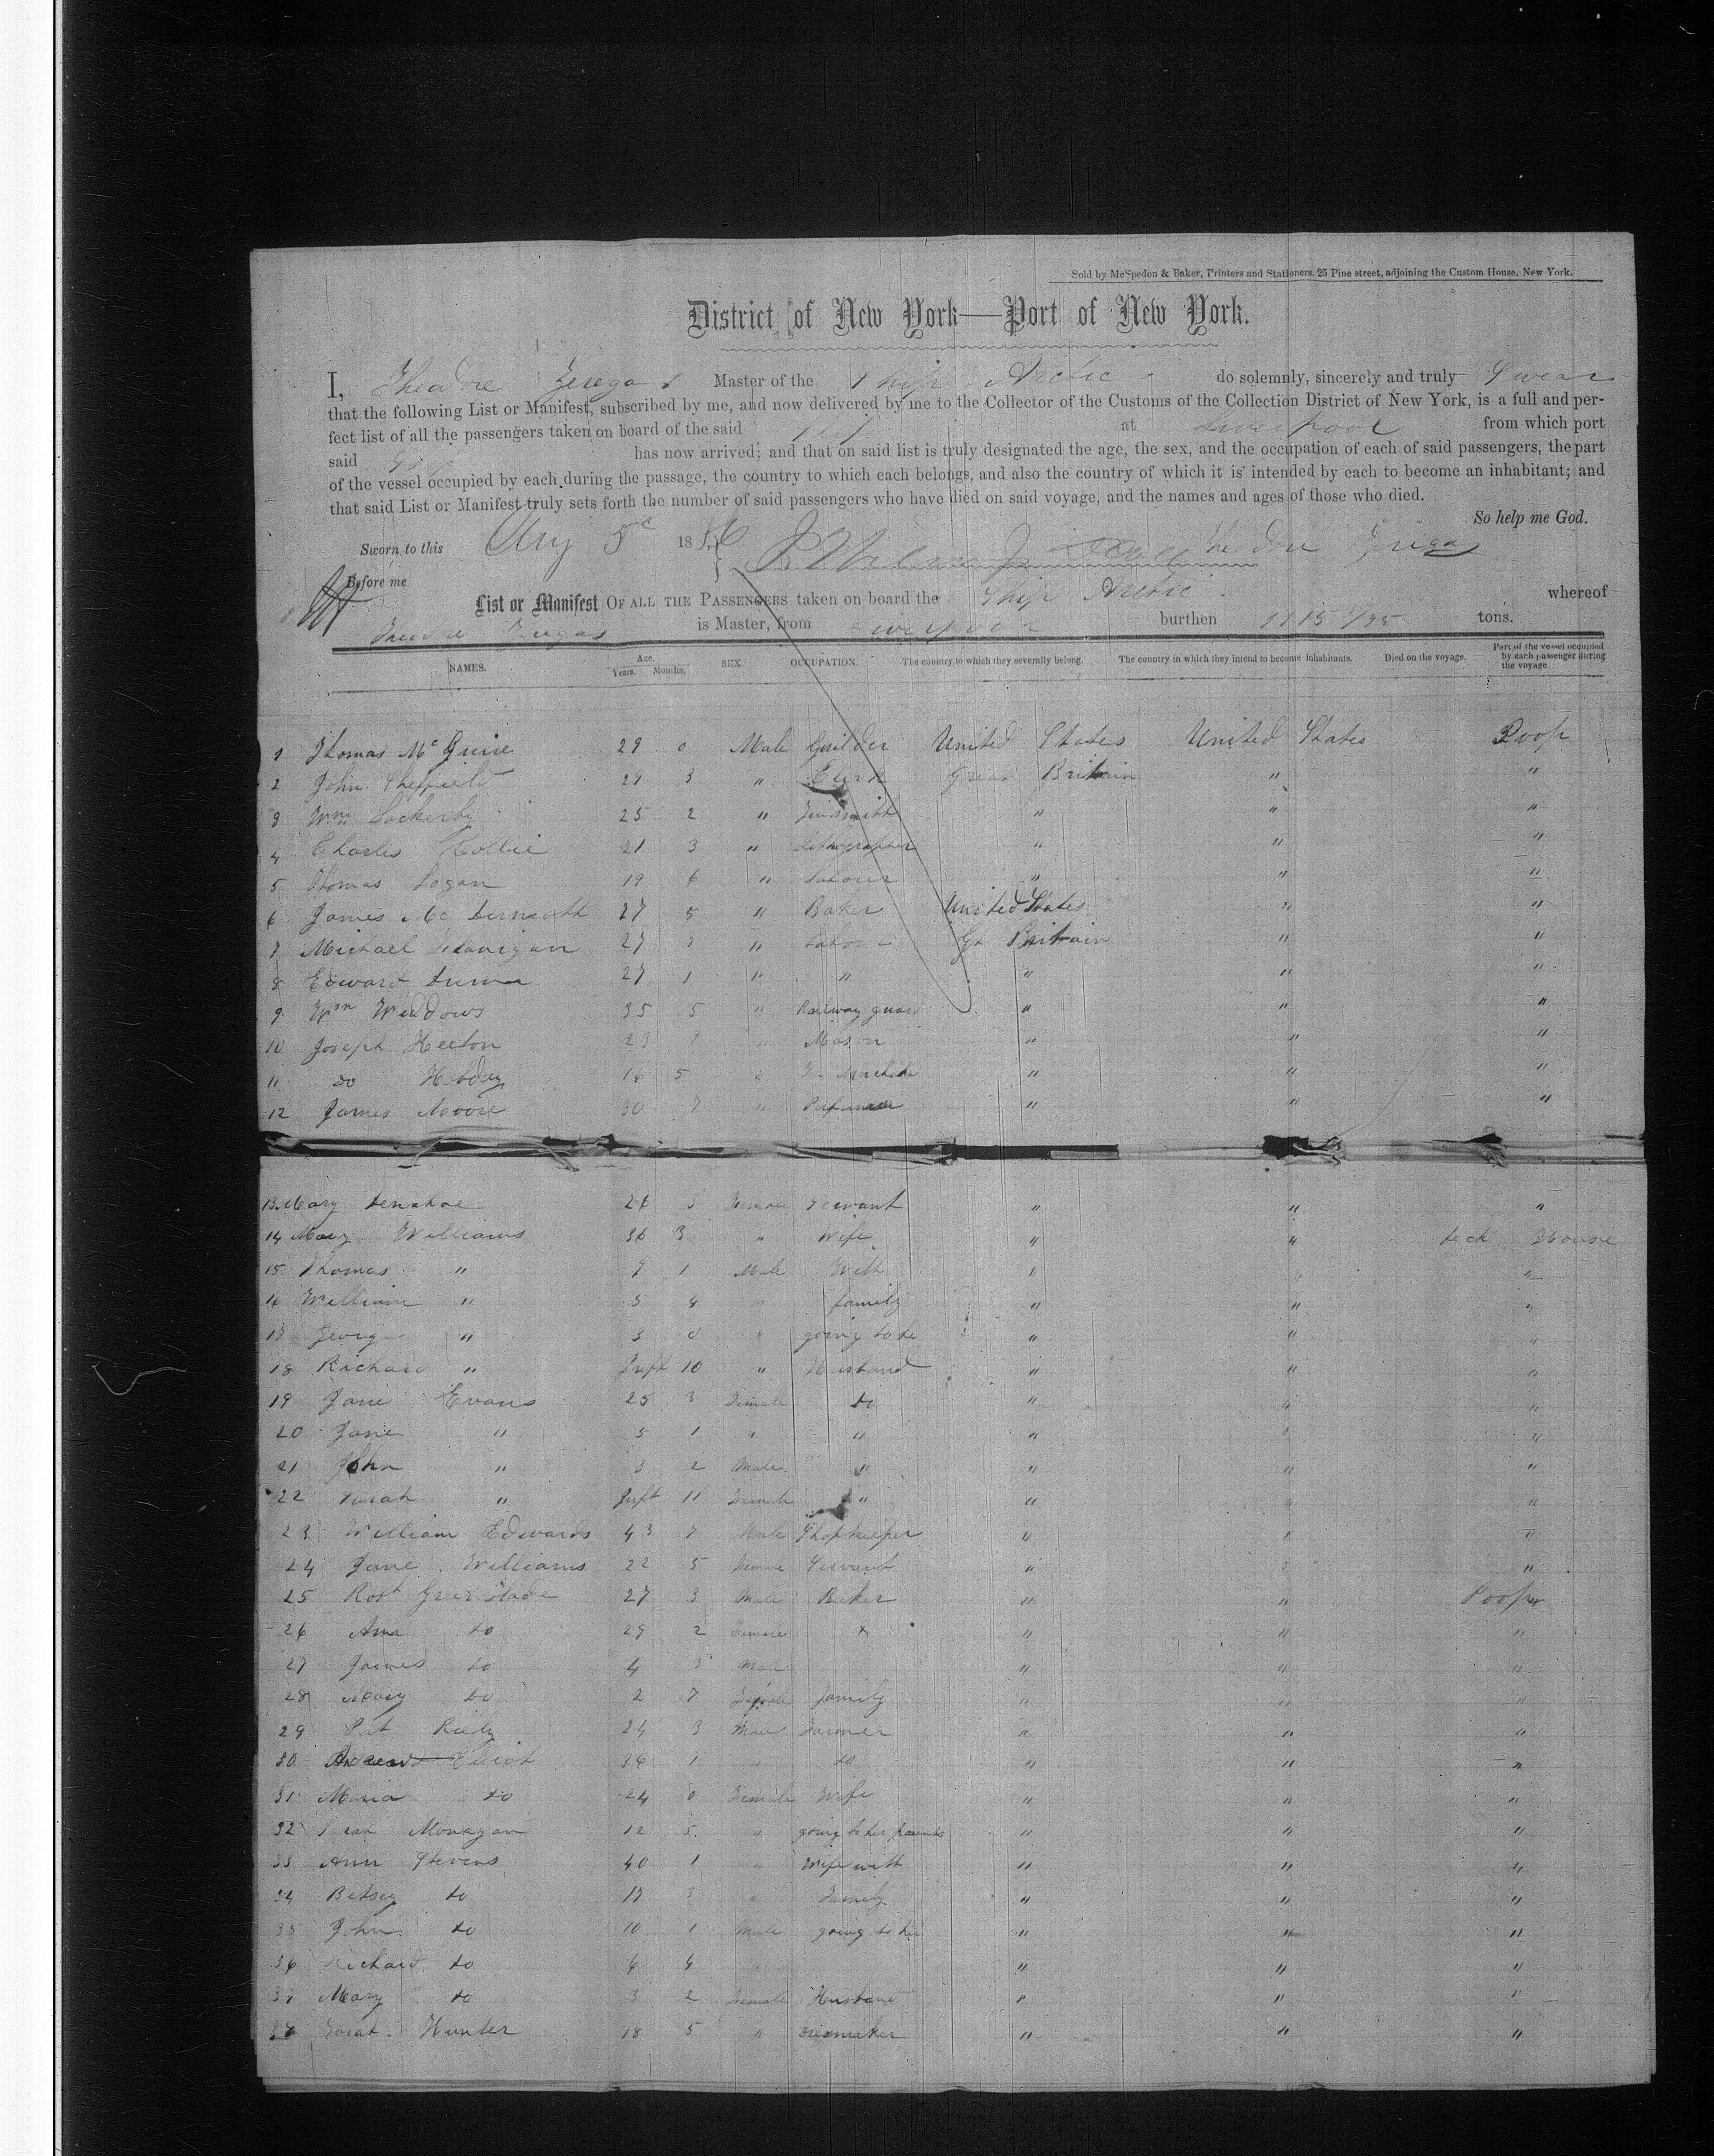 Sold by McSpedon & Baker, Printers and Stationers, 25 Pine street, adjoining the Custom House, New York.
District of New York—Port of New York.
I, Theodore Zerega Master of the Ship Arctic do solemnly, sincerely and truly Swear
that the following List or Manifest, subscribed by me, and now delivered by me to the Collector of the Customs of the Collection District of New York, is a full and per-
fect list of all the passengers taken on board of the said Ship at Liverpool from which port
said Ship has now arrived; and that on said list is truly designated the age, the sex, and the occupation of each of said passengers, the part
of the vessel occupied by each during the passage, the country to which each belongs, and also the country of which it is intended by each to become an inhabitant; and
that said List or Manifest truly sets forth the number of said passengers who have died on said voyage, and the names and ages of those who died.
So help me God.
Sworn to this Aug 5 18 Theodore Zerega
Before me
List or Manifest OF ALL THE PASSENGERS taken on board the Ship Arctic whereof
Theodore Zerega is Master, from Liverpool burthen 1115 /95 tons.
NAMES. Age. Years. Months. SEX. OCCUPATION. The country to which they severally belong. The country in which they intend to become inhabitants. Died on the voyage. Part of the vessel occupied by each passenger during the voyage.
1 Thomas McGuire 29 0 Male Guilder United States United States Poop
2 John Sheffield 29 3 " Clerk Great Britain " "
3 Wm Lockerby 25 2 " Tinsmith " " "
4 Charles Hollie 21 3 " Lithographer " " "
5 Thomas Logan 19 6 " Laborer " " "
6 James Mc Dermott 27 5 " Baker United States " "
7 Michael Flanigan 27 3 " Labor Gt Britain " "
8 Edward 27 1 " " " " "
9 Wm Meadows 35 5 " Railway guard " " "
10 Joseph Keeton 23 " Mason " " "
11 do Hobday 5 " " " "
12 James Moore 30 7 " " " "
13 Mary Denahoe 26 3 Female Servant " " "
14 Mary Williams 36 3 " Wife " " Deck House
15 Thomas " 7 1 Male With " " "
16 William " 5 4 " family " " "
17 George " 3 0 " going to he " " "
18 Richard " Inft 10 " Husband " " "
19 Jane Evans 25 3 Female do " " "
20 Jane " 5 1 " " " " "
21 John " 3 2 Male " " " "
22 Sarah " Inft 11 Female " " " "
23 William Edwards 43 7 Male Shopkeeper " " "
24 Jane Williams 22 5 Female Servant " " "
25 Robt Greenslade 27 3 Male Baker " " Poop
26 Ann do 29 2 Female " " "
27 James do 4 3 Male " " "
28 Mary do 2 7 Female family " " "
29 Pat Riely 24 3 Male Farmer " " "
30 Andrew Elliot 36 1 " do " " "
31 Maria do 24 0 Female Wife " " "
32 Monagan 12 5 " going to her parents " " "
33 Ann Stevens 40 1 " Wife with " " "
34 Betsey do 13 3 " Family " " "
35 John do 10 1 Male going to her " " "
36 Richard do 6 4 " " " "
37 Mary do 3 2 Female Husband " " "
38 Sarah Hunter 18 5 " Dressmaker " " "